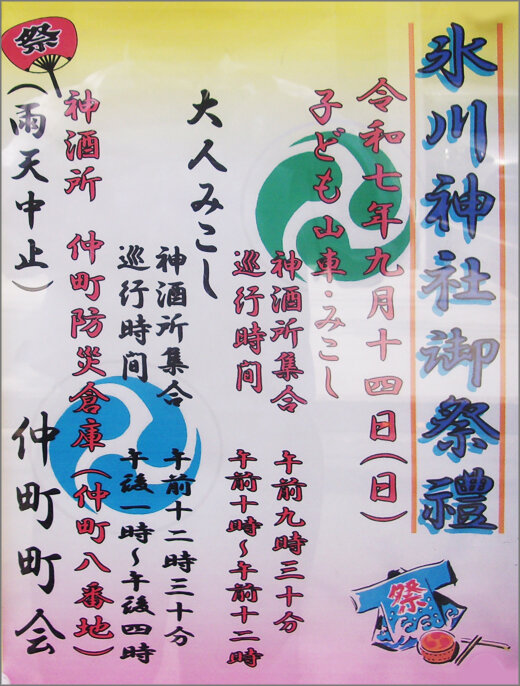 氷川神社御祭禮
令和七年九月十四日(日)
子ども山車・みこし
神酒所集合 午前九時三十分
巡行時间 午前十時~午前十二時
大人みこし
神酒所集合 午前十二時三十分
巡行時间 午後一時~午後四時
神酒所 仲町防災倉庫(仲町八番地)
(雨天中止)
仲町町会
祭
祭